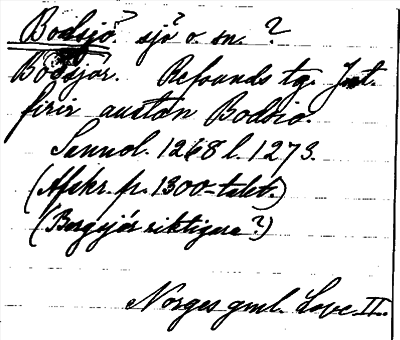 Bodsjö? sjö o. sn. ?
Bodsjor. Refsunds tg. Jmt.
firir austan Bodsio.
Sannol. 1268 l. 1273.
(Afskr. fr. 1300-talet.)
(Bergsjör riktigare?)
Norges gml. Love II.